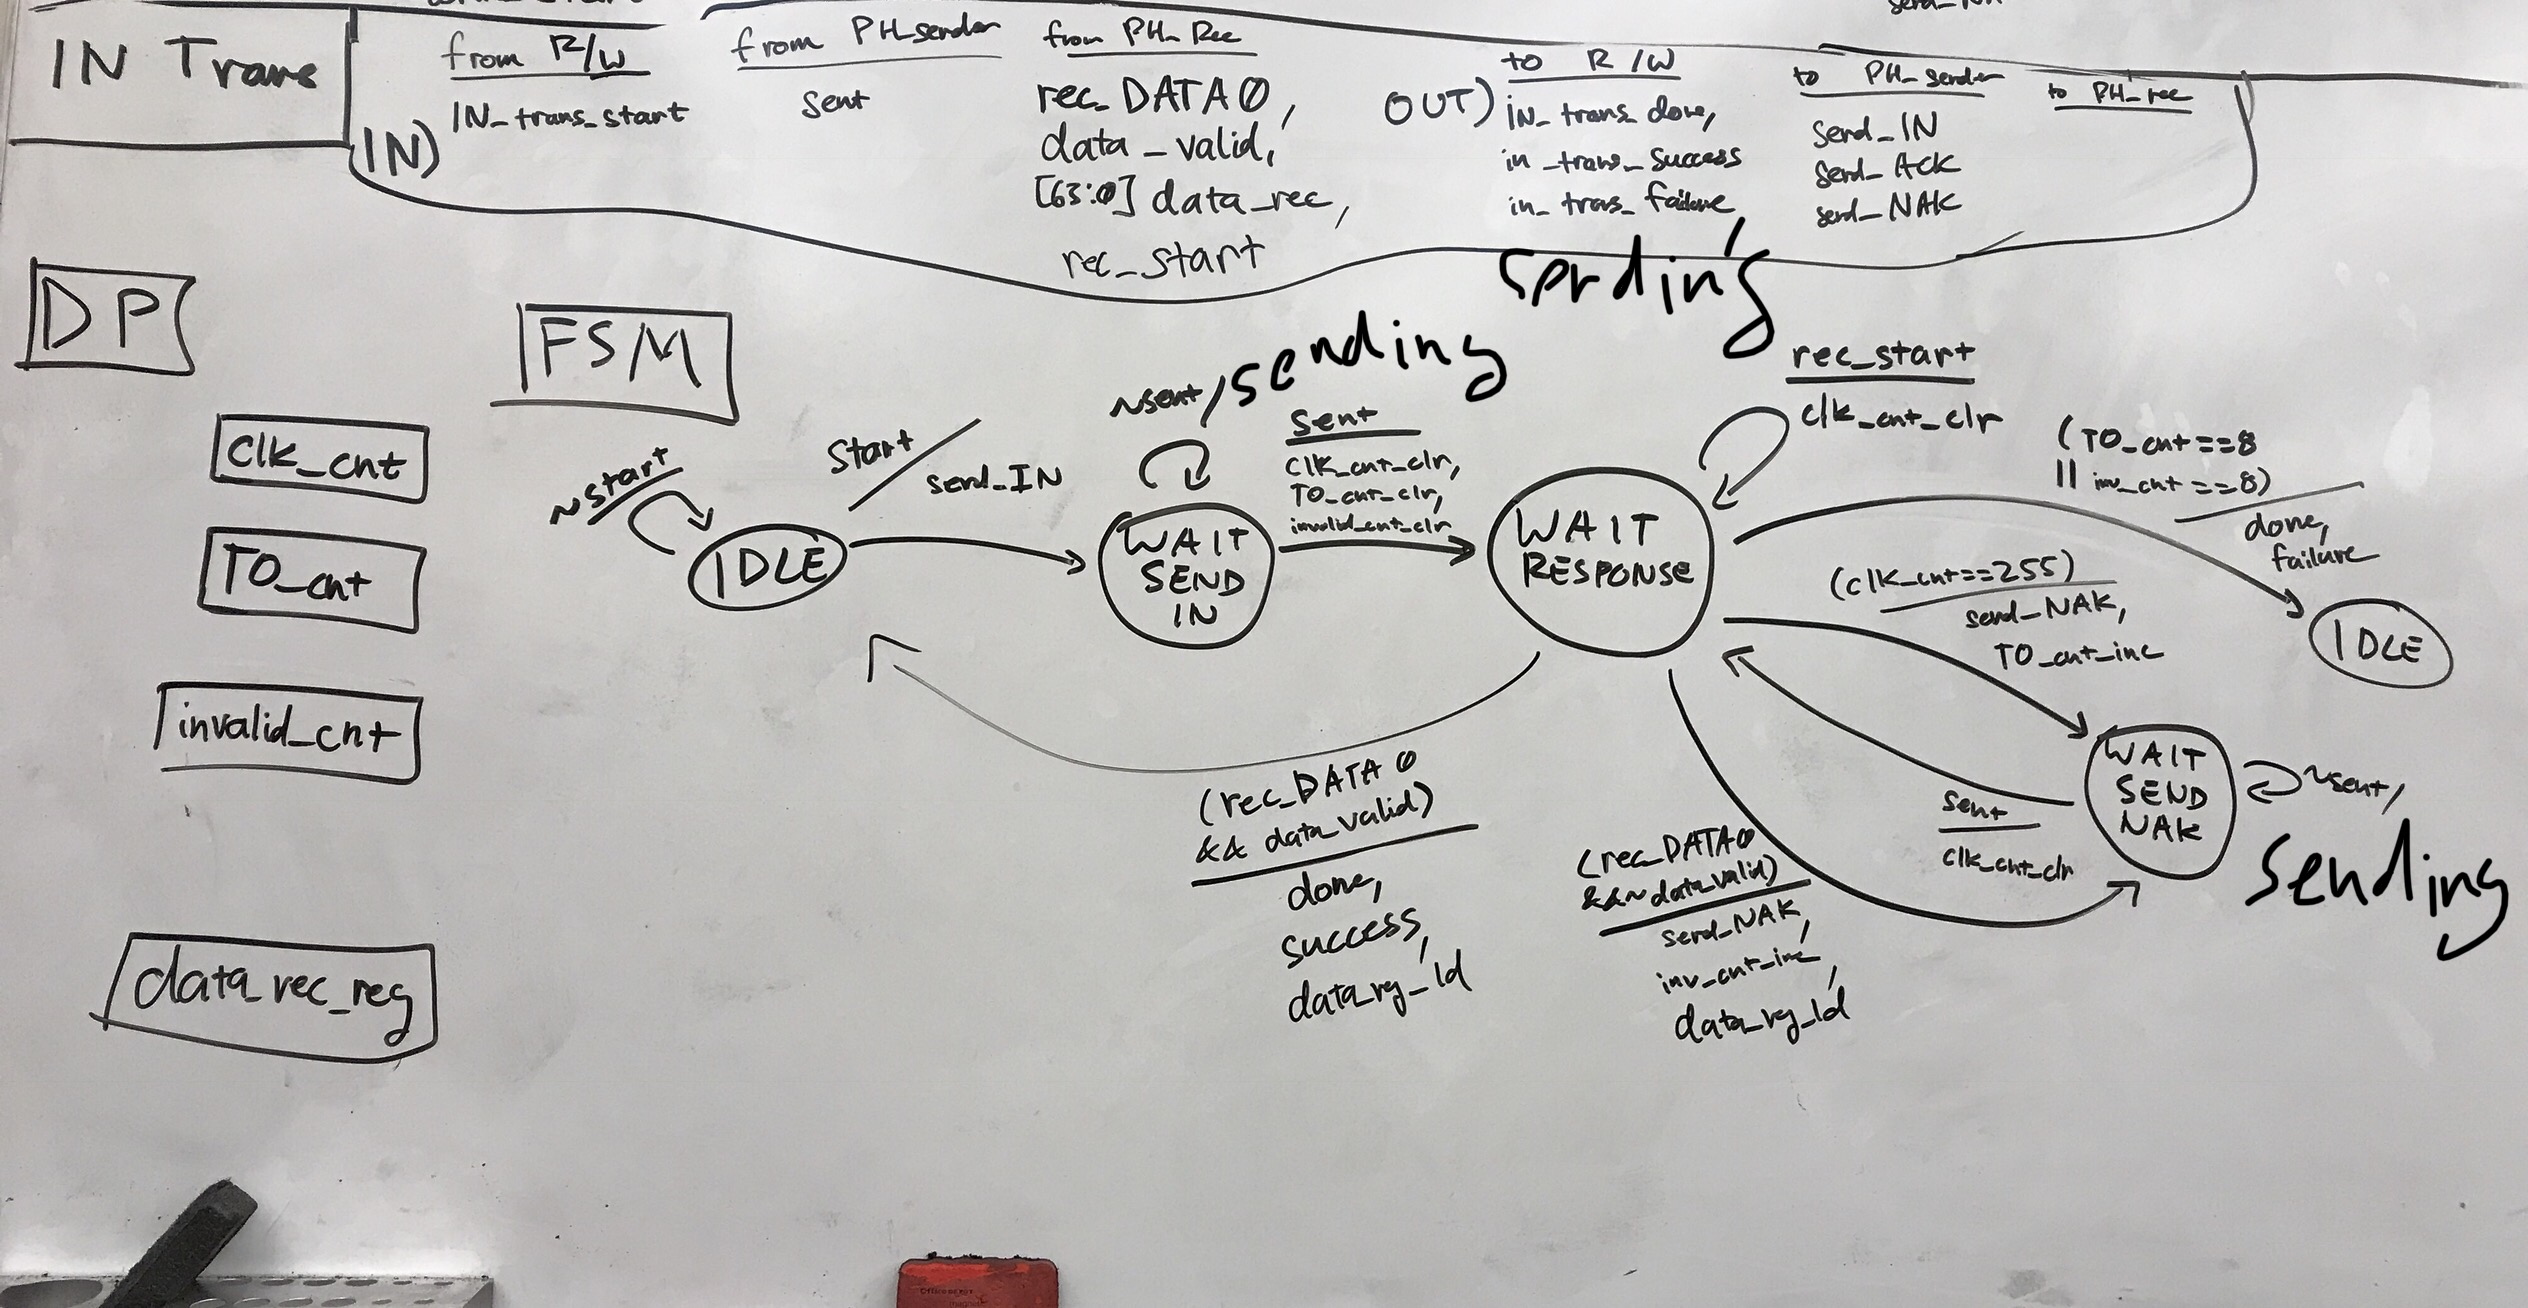 send_NAK
IN Trans
IN)
from R/W
IN_trans_start
from PH_sender
sent
from PH_Rec
rec_DATA0,
data_valid,
[63:0] data_rec,
rec_start
OUT)
to R/W
in_trans_done,
in_trans_success
in_trans_failure,
sending
to PH_sender
send_IN
send_ACK
send_NAK
to PH_rec
DP
clk_cnt
TO_cnt
invalid_cnt
data_rec_reg
FSM
~start
IDLE
start
send_IN
~sent/sending
WAIT
SEND
IN
sent
clk_cnt_clr,
TO_cnt_clr,
invalid_cnt_clr
WAIT
RESPONSE
rec_start
clk_cnt_clr
(TO_cnt==8
|| inv_cnt==8)
done,
failure
IDLE
(clk_cnt==255)
send_NAK,
TO_cnt_inc
WAIT
SEND
NAK
~sent/
sending
sent
clk_cnt_clr
(rec_DATA0
&& data_valid)
done,
success,
data_rg_ld
(rec_DATA0
&&~data_valid)
send_NAK,
inv_cnt_inc,
data_rg_ld